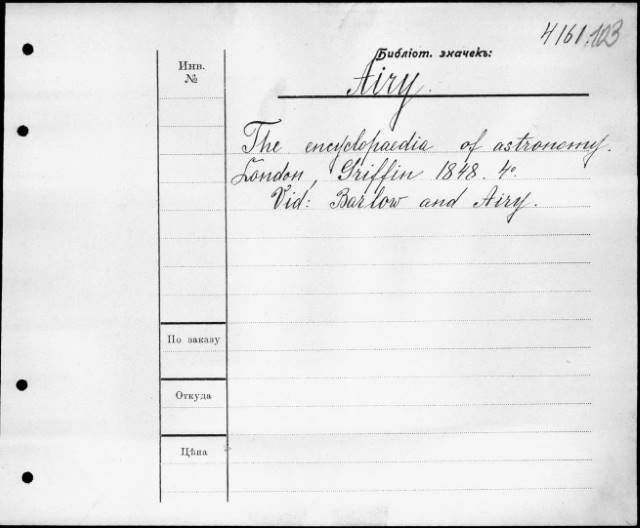 4161.103
Библіот. значекъ:
Инв.
№
Airy.
The encyclopaedia of astronomy.
London, Griffin 1848. 4°.
Vid: Barlow and Airy.
По заказу
Откуда
Цѣна